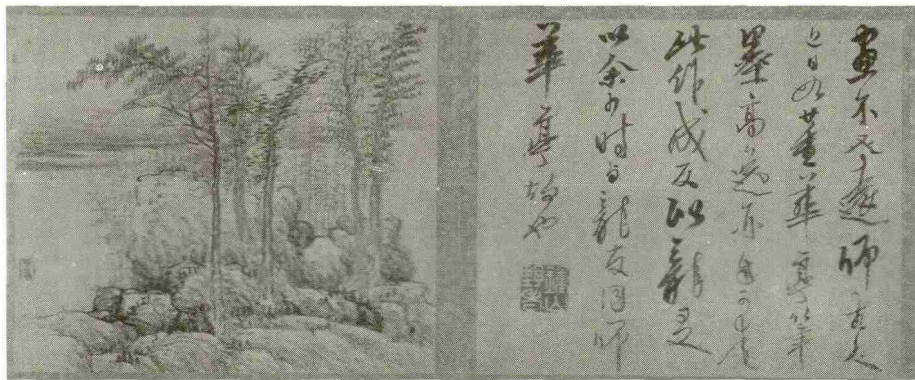 畫不必遠師古人
近日如董華亭筆
墨高逸亦自可
此作成反似龍友
以余少時與龍友同師
華亭故也